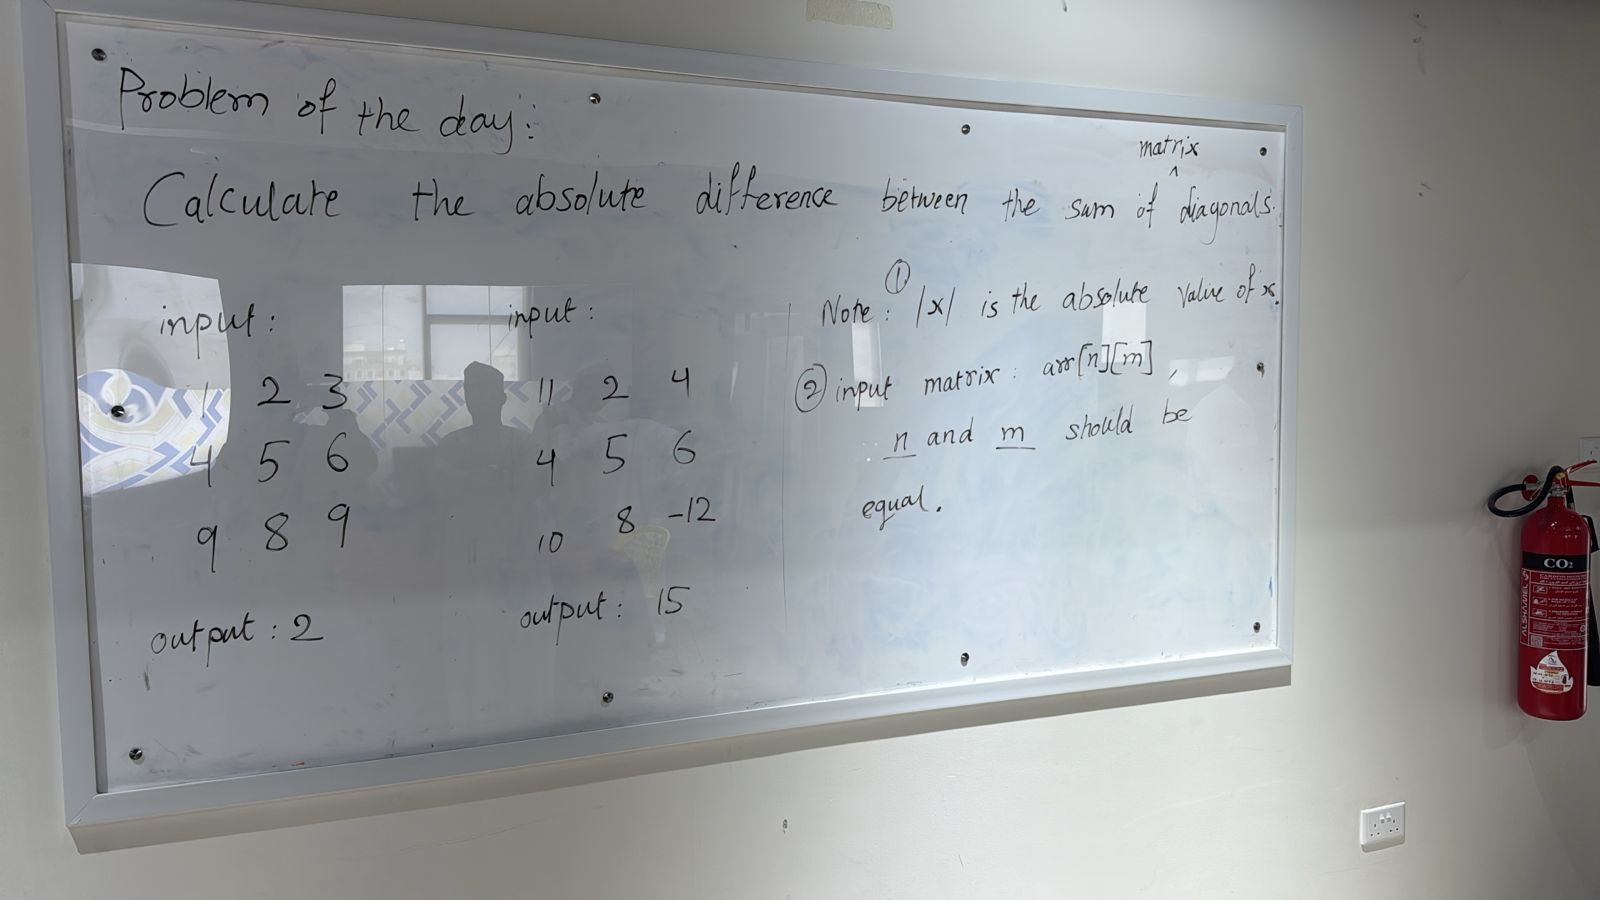 Problem of the day:
matrix
Calculate the absolute difference between the sum of ^ diagonals.
input:
1 2 3
4 5 6
9 8 9
output: 2
input:
11 2 4
4 5 6
10 8 -12
output: 15
Note: ① |x| is the absolute value of x.
② input matrix: arr[n][m],
n and m should be
equal.
CO₂
ALSHAMEL